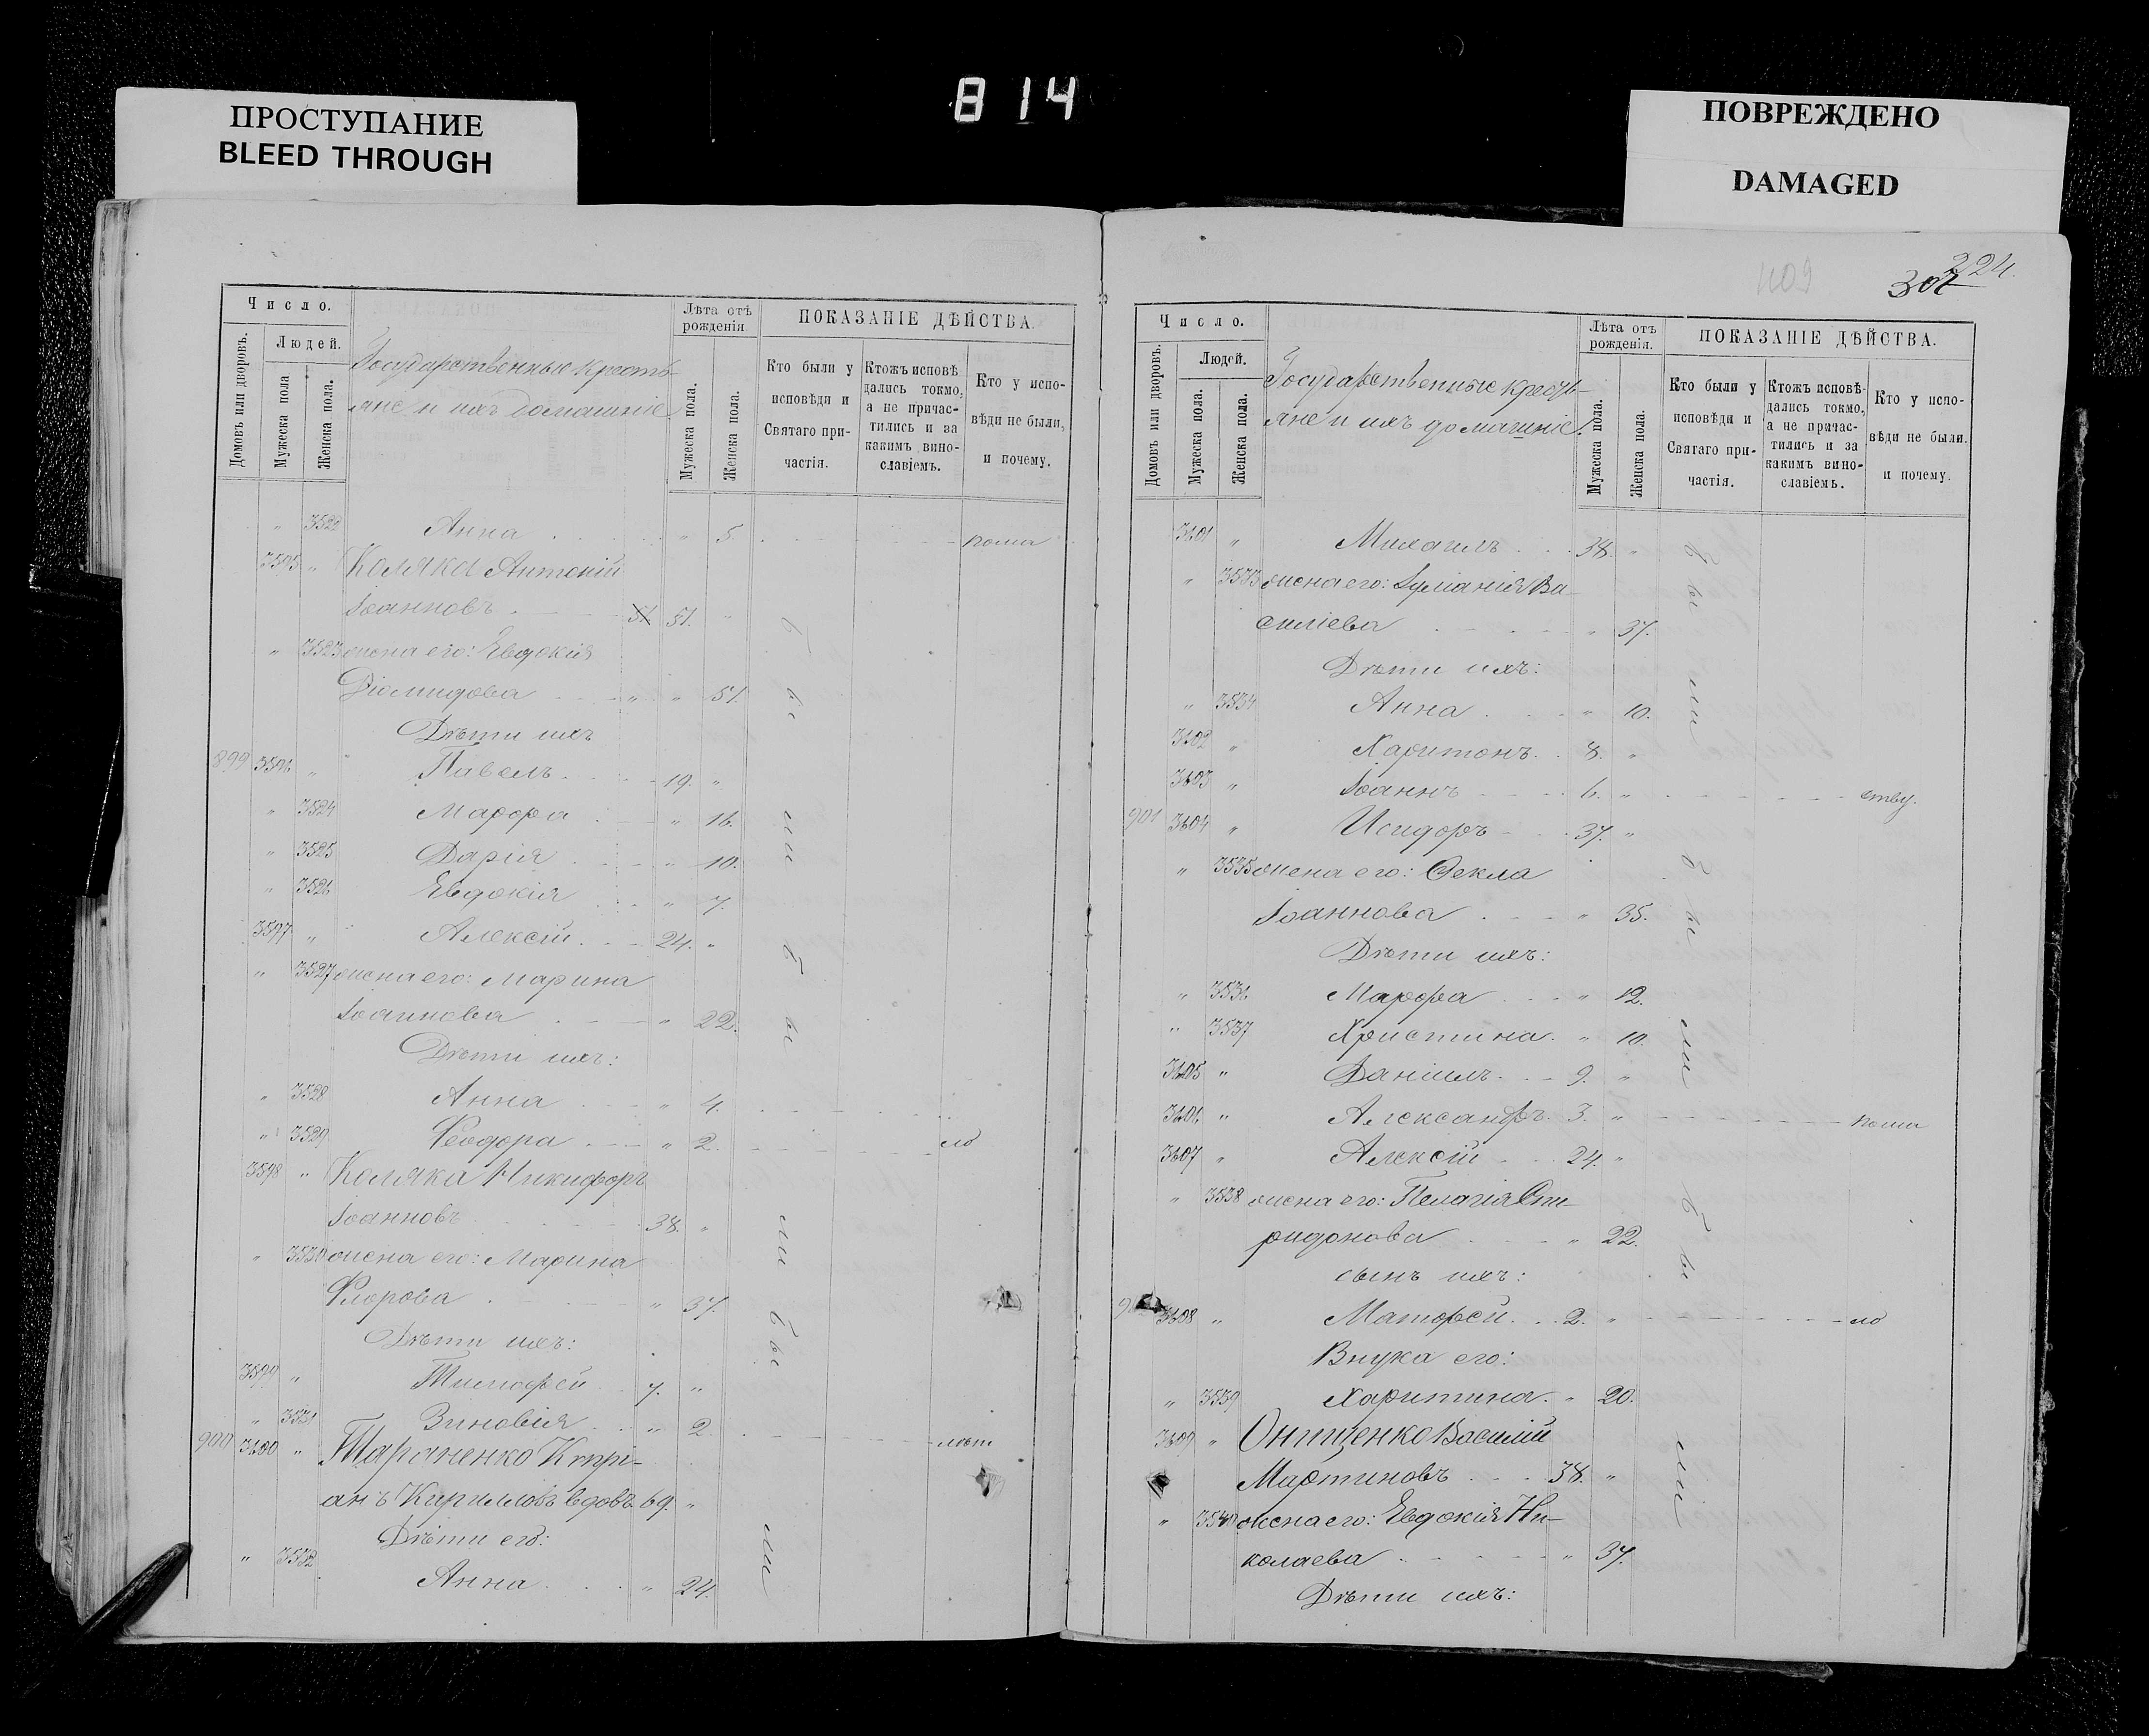 814
ПРОСТУПАНИЕ
BLEED THROUGH
ПОВРЕЖДЕНО
DAMAGED
Число.
Домовъ или дворовъ.
Людей.
Мужеска пола
Женска пола.
Государственные кресть-
яне и ихъ домашніе
Лѣта отъ рожденія
Мужеска пола.
Женска пола.
ПОКАЗАНІЕ ДѢЙСТВА.
Кто были у исповѣди и Святаго при-частія.
Ктожъ исповѣ дались токмо, а не причас-тились и за какимъ вино-славіемъ.
Кто у испо-вѣди не были, и почему.
" 3522 Анна " 5 пома
3595 " Коляка Антоній
Іоанновъ 51 51. "
" 3523 жена его: Евдокія
Діомидова " " 51.
Дѣти ихъ
899 3596 " Павелъ 19. "
" 3524 Марфа " 16.
" 3525 Дарія " 10.
" 3526 Евдокія " 7.
3597 " Алексій 24. "
" 3527 жена его: Марина
Іоаннова " 22.
Дѣти ихъ:
" 3528 Анна " 4.
" 3529 Феодора " 2. ло
3598 " Коляка Никифоръ
Іоанновъ 38. "
" 3530 жена его: Марина
Флорова " 37.
Дѣти ихъ:
3599 " Тимофей 7. "
" 3531 Зиновія " 2 лѣт
900 3600 " Тараненко Кипрі-
анъ Кирилловъ вдовъ 69. "
Дѣти его:
" 3532 Анна " 24.
бы ли бы ли бы ли
409
307 224.
Число.
Домовъ или дворовъ.
Людей.
Мужеска пола.
Женска пола.
Государственные кресть-
яне и ихъ домашніе.
Лѣта отъ рожденія.
Мужеска пола.
Женска пола.
ПОКАЗАНІЕ ДѢЙСТВА.
Кто были у исповѣди и Святаго при-частія.
Ктожъ исповѣ-дались токмо, а не причас-тились и за какимъ вино-славіемъ.
Кто у испо-вѣди не были. и почему.
3601 " Михаилъ 38. "
" 3533 жена его: Іуліанія Ва-
силіева " 37.
Дѣти ихъ:
" 3534 Анна " 10.
3602 " Харитонъ 8. "
3603 " Іоаннъ 6. " ству.
901 3604 " Исидоръ 37. "
" 3535 жена его: Ѳекла
Іоаннова " 35.
Дѣти ихъ:
" 3536 Марфа " 12.
" 3537 Христина " 10.
3605 " Даніилъ 9. "
3606 " Александръ 3. " поми
3607 " Алексій 24. "
" 3538 жена его: Пелагія Спи-
ридонова " 22.
сынъ ихъ:
3608 " Матфей 2. " ло
Внука его:
" 3539 Харитина " 20.
3609 " Онищенко Василій
Мартиновъ 38. "
" 3540 жена его: Евдокія Ни-
колаева " 37.
Дѣти ихъ:
бы ли бы ли бы ли